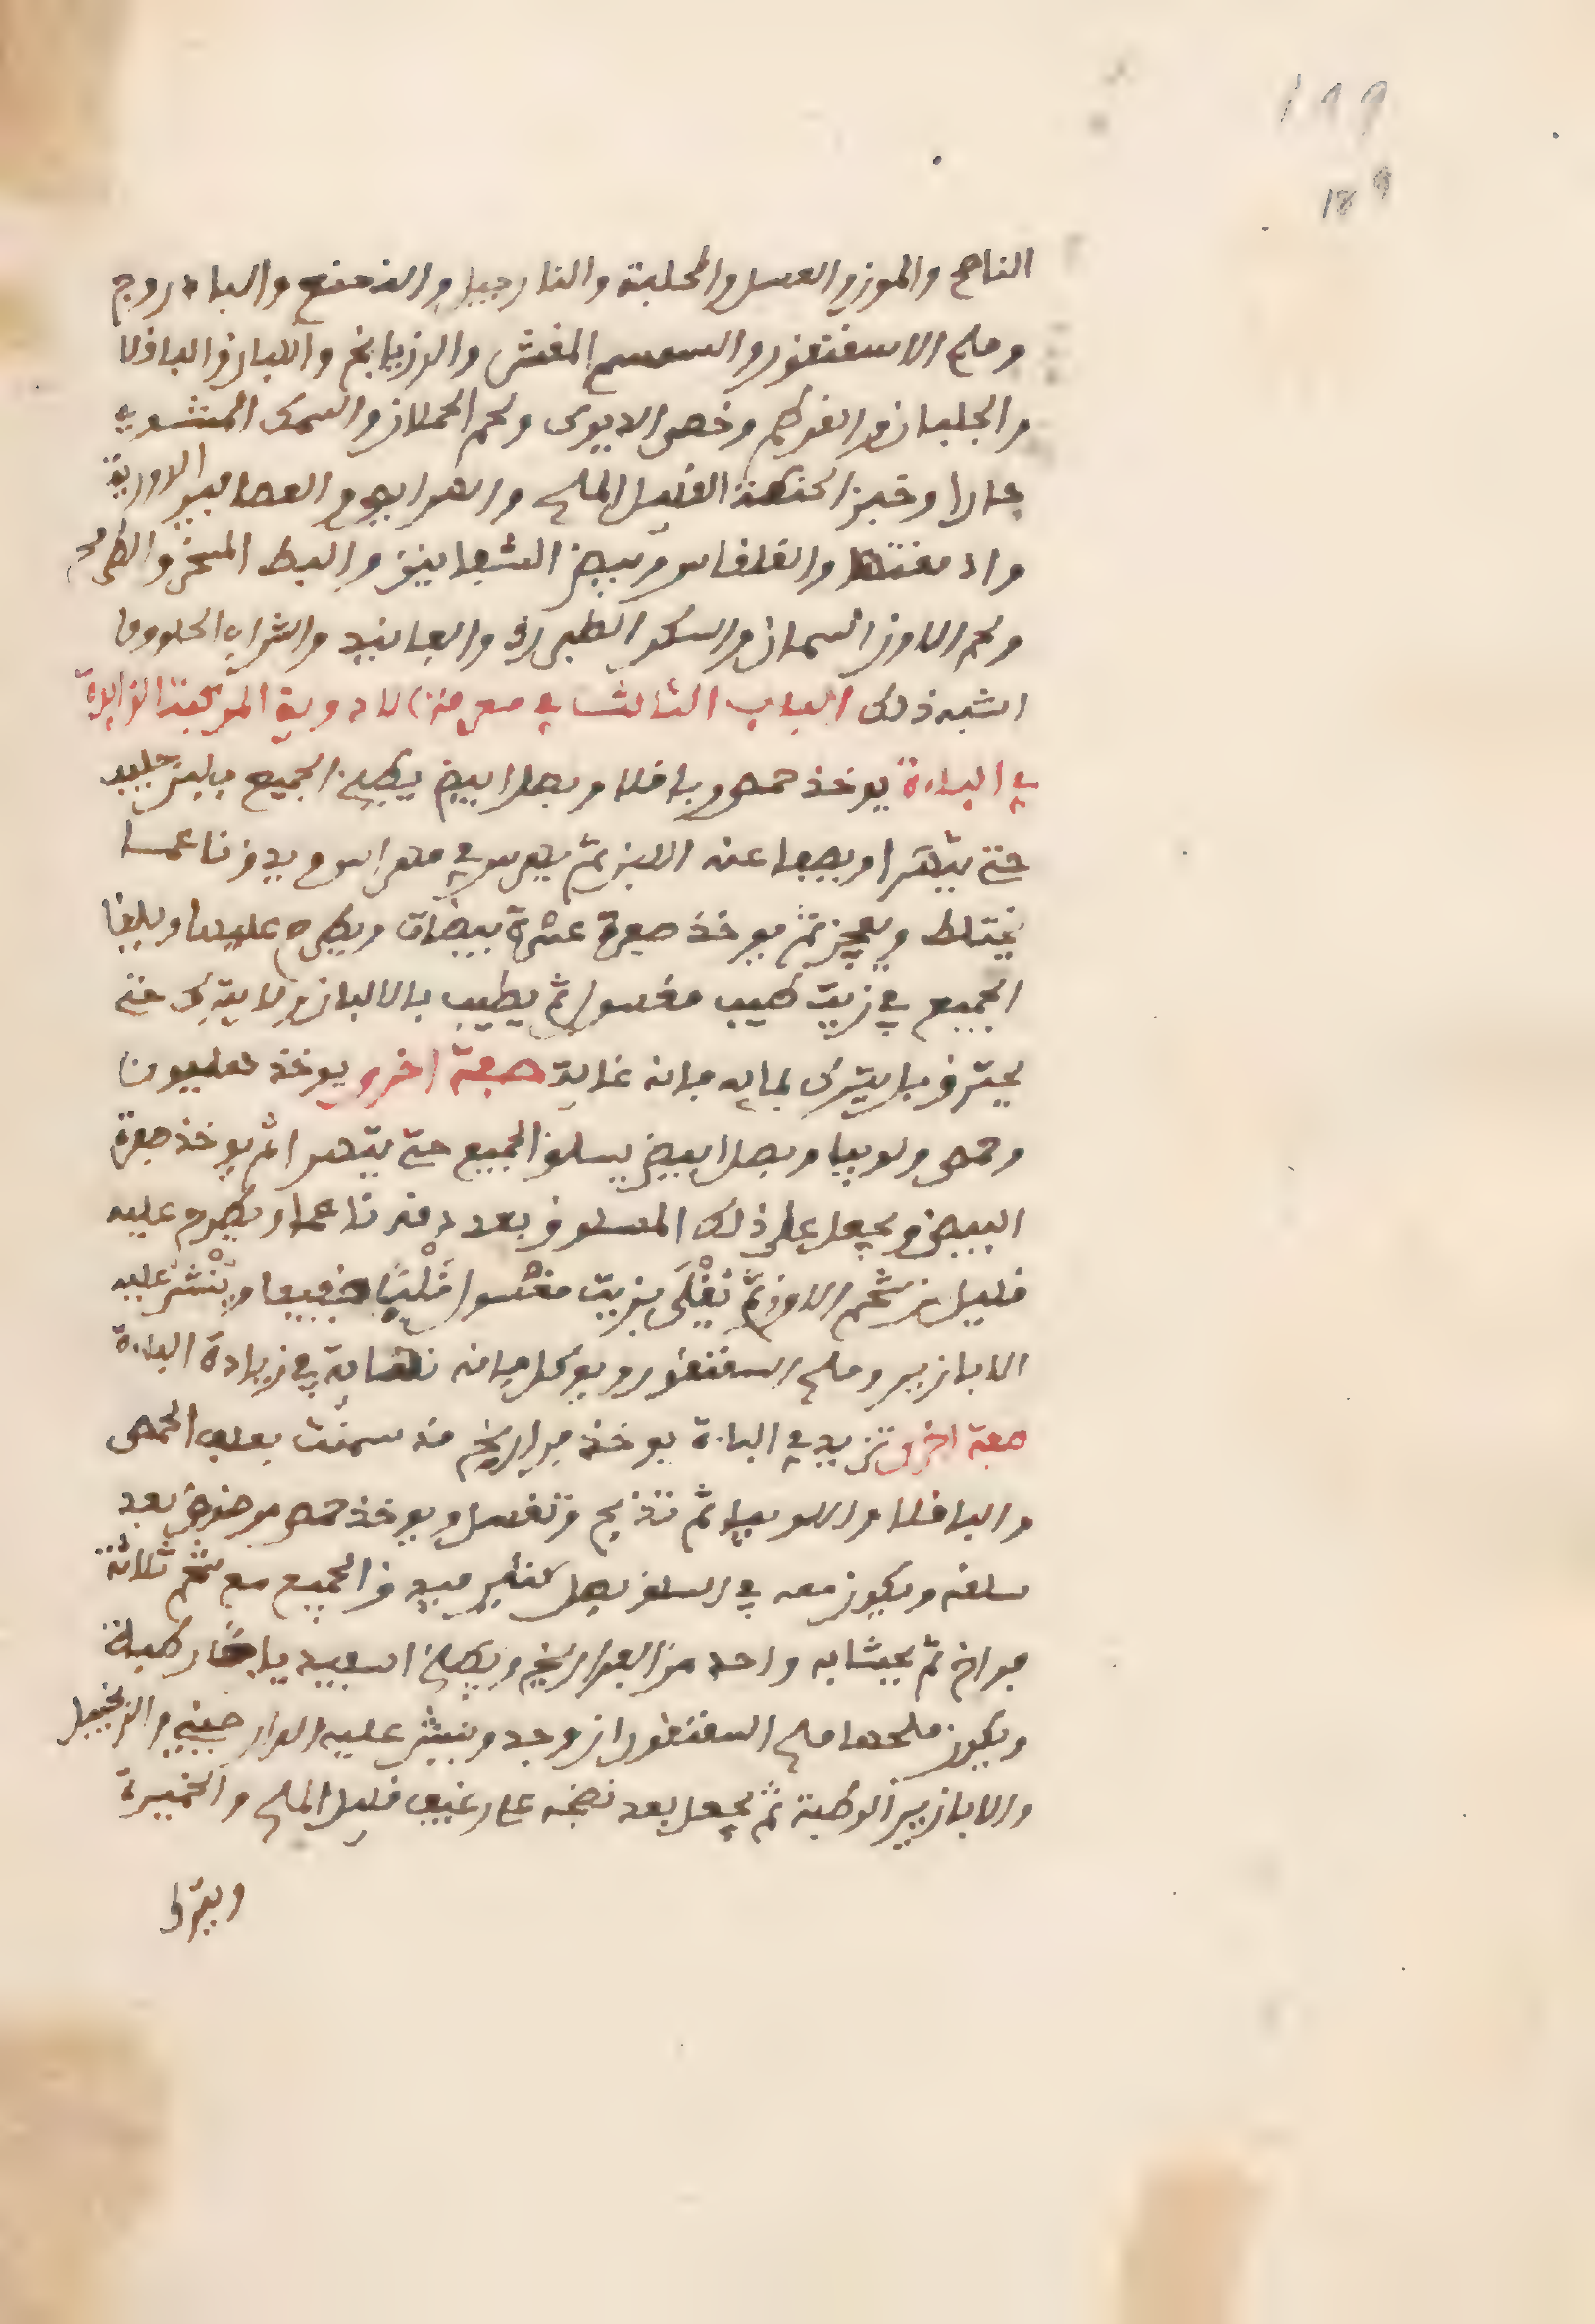 ١٨٩
189
الناعم والموز والعسل والحلبة والنارجيل والنعنع والباذروج
وملح الاسقنقور والسمسم المقشر والرزيانج واللبان والباقلا
والجلبان والقرطم وخصى الديوك ولحم الحملان والسمك المشوي
حارا وخبز الحنطة القليل الملح والهرايس والعصافير الدورية
وادمغتها والقلقاس وبيض الشفانين والبط المسخن والطري
ولحم الاوز السمان والسكر الطبرزد والفانيد والشراب الحلو وما
اشبه ذلك الباب الثالث في معرفة الادوية المركبة الزايدة
في الباءة يوخذ حمص وباقلا وبصل ابيض يطبخ الجميع بلبن حليب
حتى يتهرا ويصفا عنه اللبن ثم يهرس في مهراس ويدق ناعما
يختلط ويعجن ثم يوخذ صفرة عشرة بيضات ويطرح عليها ويلقا
الجميع في زيت طيب مغسول ثم يطيب بالالبان ولا يترك حتى
يحترق بل يترك بمايه فانه غاية صفة اخرى يوخذ هليون
وحمص ولوبيا وبصل ابيض يسلق الجميع حتى يتهرا ثم يوخذ صفرة
البيض ويجعل على ذلك المسلوق بعد دقه ناعما ويطرح عليه
قليل من شحم الاوز ثم تُقْلَى بزيت مغسول قَلْيًا خفيفا ويُنْثَر عليه
الابازير وملح اسقنقور ويوكل فانه نهاية في زيادة الباءة
صفة اخرى تزيد في الباءة يوخذ فراريخ قد سمنت بعلف الحمص
والباقلا واللوبيا ثم تذبح وتغسل ويوخذ حمص مرضوض بعد
سلقه ويكون معه في السلق بصل كثير فيدق الجميع مع شحم ثلاثة
فراخ ثم يحشا به واحد من الفراريخ ويطبخ اسفيدباجا رطبة
ويكون ملحها ملح السقنقور ان وجد وينثر عليه الدار صيني والزنجبيل
والابازير الرطبة ثم يجعل بعد نضجه على رغيف قليل الملح والخميرة
ويترك